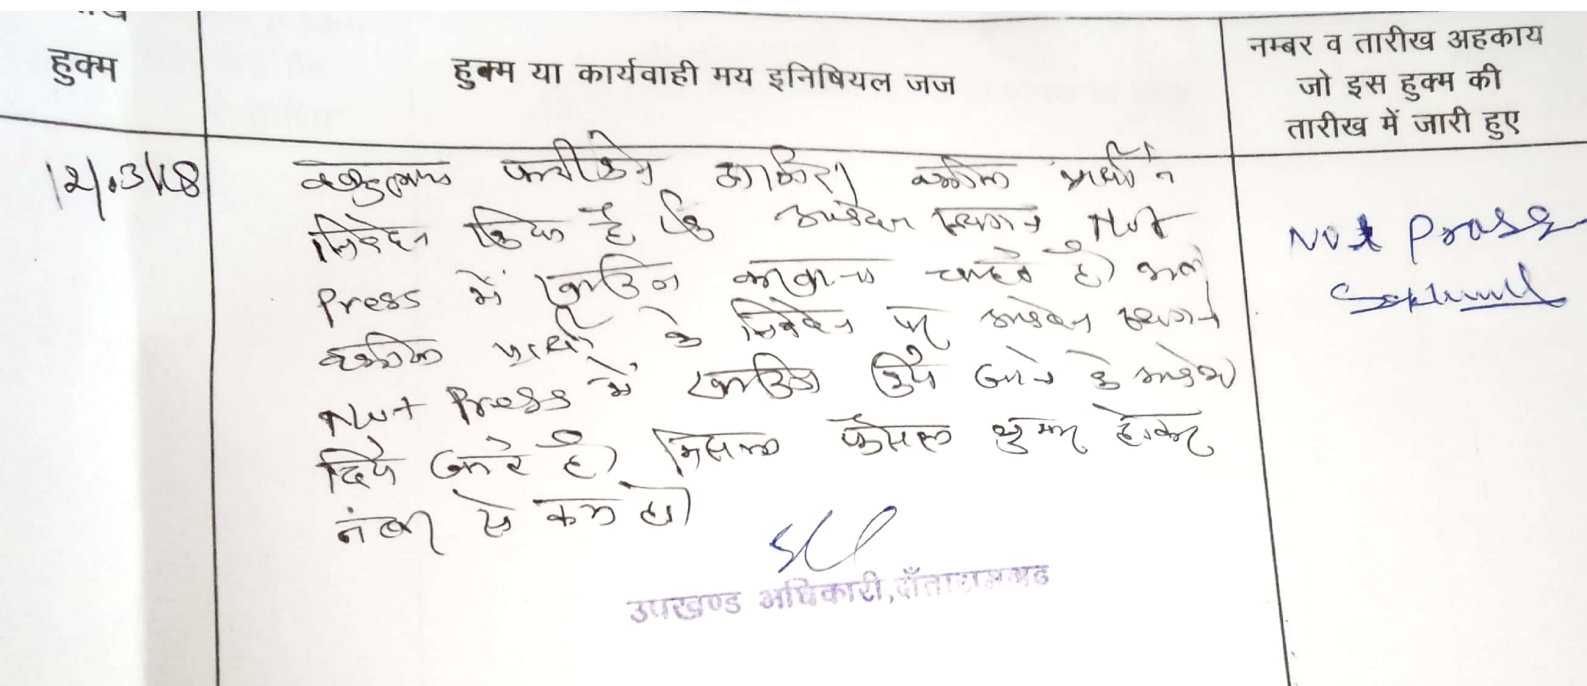 हुक्म
हुक्म या कार्यवाही मय इनिषियल जज
नम्बर व तारीख अहकाय
जो इस हुक्म की
तारीख में जारी हुए
12.3.18
वकुलाय फरीकेन हाजिर। वकील प्रार्थी ने
निवेदन किया है कि आवेदन स्थगन Not
Press में खारिज करवाना चाहते है। अतः
वकील प्रार्थी के निवेदन पर आवेदन स्थगन
Not Press में खारिज किये जाने के आदेश
दिये जाते है। मिसल फैसल शुमार होकर
नंबर से कम हो।
Not Press
उपखण्ड अधिकारी, दाँतारामगढ